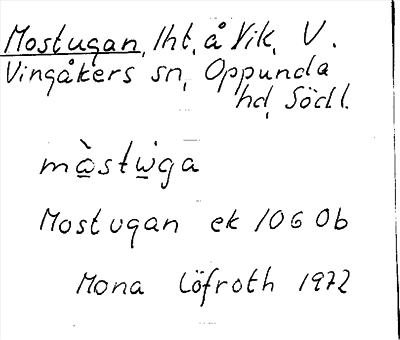 Mostugan, lht, å Vik, V.
Vingåkers sn, Oppunda
hd, Södl.
mà̱stẁ̱ga
Mostugan ek 10G 0b
Mona Löfroth 1972